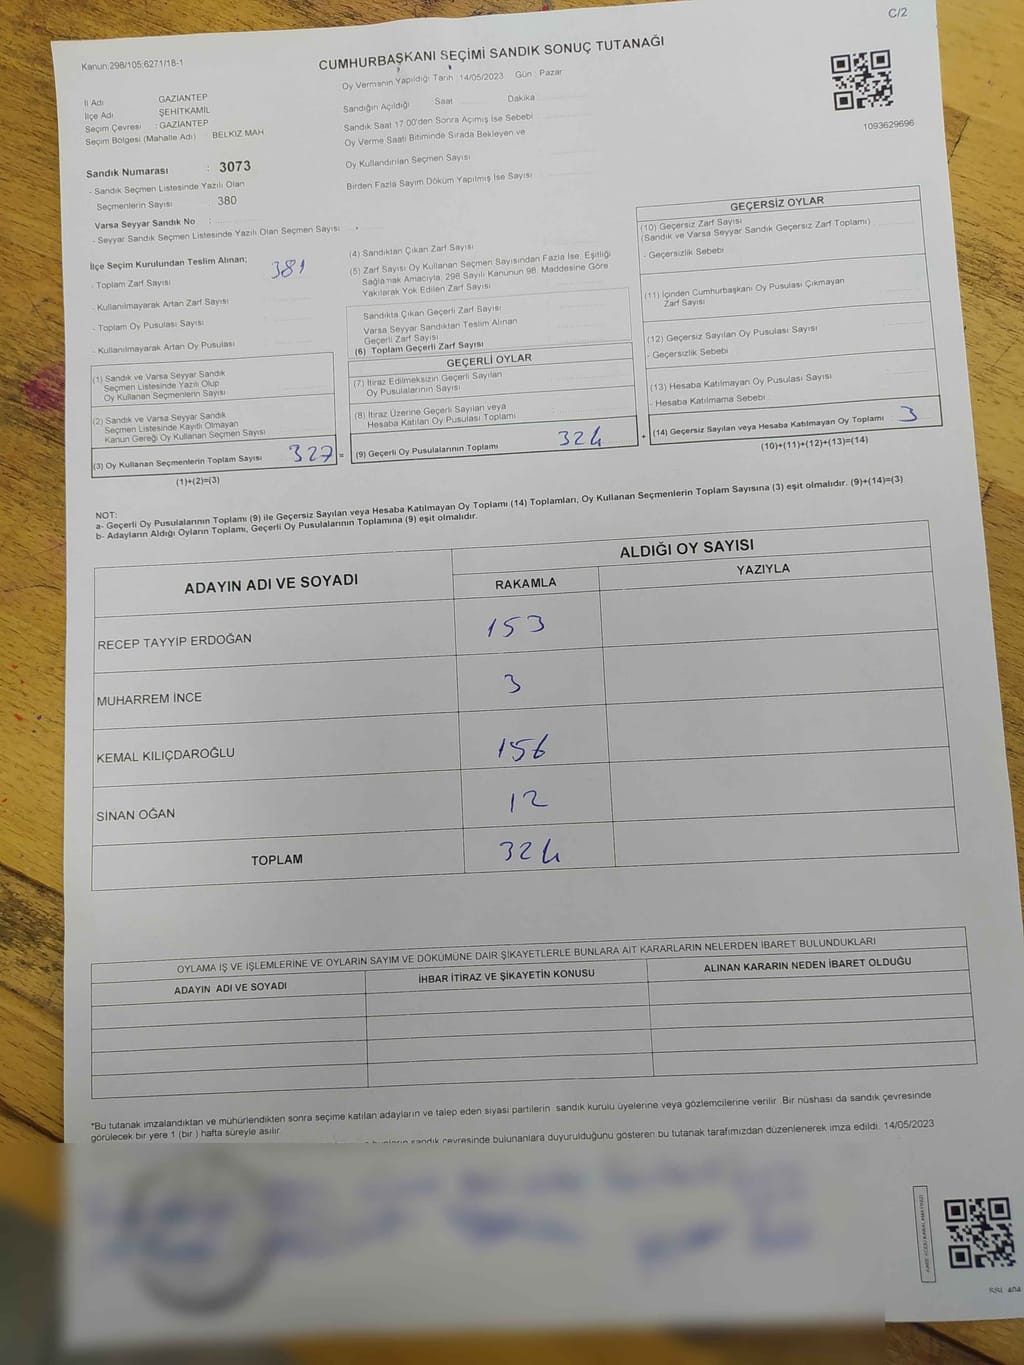 C/2
Kanun:298/105;6271/18-1
CUMHURBAŞKANI SEÇİMİ SANDIK SONUÇ TUTANAĞI
Oy Vermenin Yapıldığı Tarih : 14/05/2023 Gün : Pazar
İl Adı GAZİANTEP
İlçe Adı ŞEHİTKAMİL
Seçim Çevresi : GAZİANTEP
Seçim Bölgesi (Mahalle Adı) : BELKIZ MAH
Sandık Numarası : 3073
- Sandık Seçmen Listesinde Yazılı Olan
Seçmenlerin Sayısı : 380
Varsa Seyyar Sandık No :
- Seyyar Sandık Seçmen Listesinde Yazılı Olan Seçmen Sayısı :
Sandığın Açıldığı Saat Dakika
Sandık Saat 17.00'den Sonra Açımış İse Sebebi
Oy Verme Saati Bitiminde Sırada Bekleyen ve
Oy Kullandırılan Seçmen Sayısı
Birden Fazla Sayım Döküm Yapılmış İse Sayısı
1093629696
İlçe Seçim Kurulundan Teslim Alınan;
- Toplam Zarf Sayısı 381
- Kullanılmayarak Artan Zarf Sayısı
- Toplam Oy Pusulası Sayısı
- Kullanılmayarak Artan Oy Pusulası
(1) Sandık ve Varsa Seyyar Sandık
Seçmen Listesinde Yazılı Olup
Oy Kullanan Seçmenlerin Sayısı
(2) Sandık ve Varsa Seyyar Sandık
Seçmen Listesinde Kayıtlı Olmayan
Kanun Gereği Oy Kullanan Seçmen Sayısı
(3) Oy Kullanan Seçmenlerin Toplam Sayısı 327 =
(1)+(2)=(3)
(4) Sandıktan Çıkan Zarf Sayısı
(5) Zarf Sayısı Oy Kullanan Seçmen Sayısından Fazla İse, Eşitliği
Sağlamak Amacıyla, 298 Sayılı Kanunun 98. Maddesine Göre
Yakılarak Yok Edilen Zarf Sayısı
Sandıkta Çıkan Geçerli Zarf Sayısı
Varsa Seyyar Sandıktan Teslim Alınan
Geçerli Zarf Sayısı
(6) Toplam Geçerli Zarf Sayısı
GEÇERLİ OYLAR
(7) İtiraz Edilmeksizin Geçerli Sayılan
Oy Pusulalarının Sayısı
(8) İtiraz Üzerine Geçerli Sayılan veya
Hesaba Katılan Oy Pusulası Toplamı
(9) Geçerli Oy Pusulalarının Toplamı 324 +
GEÇERSİZ OYLAR
(10) Geçersiz Zarf Sayısı
(Sandık ve Varsa Seyyar Sandık Geçersiz Zarf Toplamı)
- Geçersizlik Sebebi
(11) İçinden Cumhurbaşkanı Oy Pusulası Çıkmayan
Zarf Sayısı
(12) Geçersiz Sayılan Oy Pusulası Sayısı
- Geçersizlik Sebebi
(13) Hesaba Katılmayan Oy Pusulası Sayısı
- Hesaba Katılmama Sebebi
(14) Geçersiz Sayılan veya Hesaba Katılmayan Oy Toplamı : 3
(10)+(11)+(12)+(13)=(14)
NOT:
a- Geçerli Oy Pusulalarının Toplamı (9) ile Geçersiz Sayılan veya Hesaba Katılmayan Oy Toplamı (14) Toplamları, Oy Kullanan Seçmenlerin Toplam Sayısına (3) eşit olmalıdır. (9)+(14)=(3)
b- Adayların Aldığı Oyların Toplamı, Geçerli Oy Pusulalarının Toplamına (9) eşit olmalıdır.
ADAYIN ADI VE SOYADI ALDIĞI OY SAYISI
RAKAMLA YAZIYLA
RECEP TAYYİP ERDOĞAN 153
MUHARREM İNCE 3
KEMAL KILIÇDAROĞLU 156
SİNAN OĞAN 12
TOPLAM 324
OYLAMA İŞ VE İŞLEMLERİNE VE OYLARIN SAYIM VE DÖKÜMÜNE DAİR ŞİKAYETLERLE BUNLARA AİT KARARLARIN NELERDEN İBARET BULUNDUKLARI
ADAYIN ADI VE SOYADI İHBAR İTİRAZ VE ŞİKAYETİN KONUSU ALINAN KARARIN NEDEN İBARET OLDUĞU
*Bu tutanak imzalandıktan ve mühürlendikten sonra seçime katılan adayların ve talep eden siyasi partilerin sandık kurulu üyelerine veya gözlemcilerine verilir. Bir nüshası da sandık çevresinde
görülecek bir yere 1 (bir ) hafta süreyle asılır.
sandık çevresinde bulunanlara duyurulduğunu gösteren bu tutanak tarafımızdan düzenlenerek imza edildi. 14/05/2023